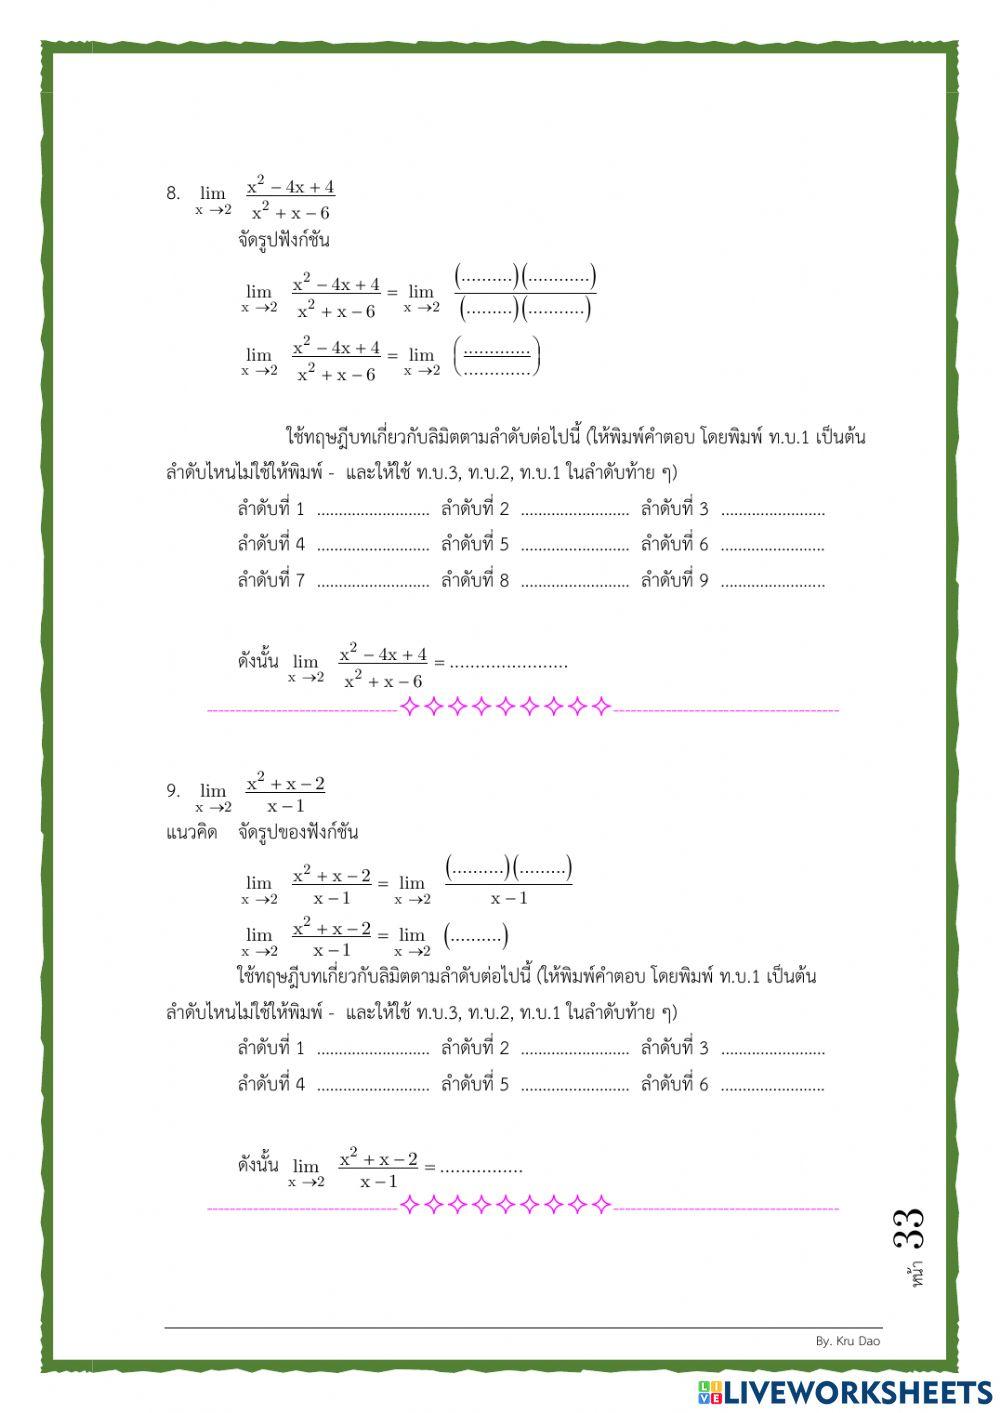 8. lim x→2 (x² − 4x + 4)/(x² + x − 6)
จัดรูปฟังก์ชัน
lim x→2 (x² − 4x + 4)/(x² + x − 6) = lim x→2 (..........)(............)/(.........)(...........)
lim x→2 (x² − 4x + 4)/(x² + x − 6) = lim x→2 (............./.............)
ใช้ทฤษฎีบทเกี่ยวกับลิมิตตามลำดับต่อไปนี้ (ให้พิมพ์คำตอบ โดยพิมพ์ ท.บ.1 เป็นต้น
ลำดับไหนไม่ใช้ให้พิมพ์ - และให้ใช้ ท.บ.3, ท.บ.2, ท.บ.1 ในลำดับท้าย ๆ)
ลำดับที่ 1 .......................... ลำดับที่ 2 ......................... ลำดับที่ 3 ........................
ลำดับที่ 4 .......................... ลำดับที่ 5 ......................... ลำดับที่ 6 ........................
ลำดับที่ 7 .......................... ลำดับที่ 8 ......................... ลำดับที่ 9 ........................
ดังนั้น lim x→2 (x² − 4x + 4)/(x² + x − 6) = .......................
9. lim x→2 (x² + x − 2)/(x − 1)
แนวคิด จัดรูปของฟังก์ชัน
lim x→2 (x² + x − 2)/(x − 1) = lim x→2 (..........)(.........)/(x − 1)
lim x→2 (x² + x − 2)/(x − 1) = lim x→2 (..........)
ใช้ทฤษฎีบทเกี่ยวกับลิมิตตามลำดับต่อไปนี้ (ให้พิมพ์คำตอบ โดยพิมพ์ ท.บ.1 เป็นต้น
ลำดับไหนไม่ใช้ให้พิมพ์ - และให้ใช้ ท.บ.3, ท.บ.2, ท.บ.1 ในลำดับท้าย ๆ)
ลำดับที่ 1 .......................... ลำดับที่ 2 ......................... ลำดับที่ 3 ........................
ลำดับที่ 4 .......................... ลำดับที่ 5 ......................... ลำดับที่ 6 ........................
ดังนั้น lim x→2 (x² + x − 2)/(x − 1) = ................
หน้า 33
By. Kru Dao
LIVE LIVEWORKSHEETS